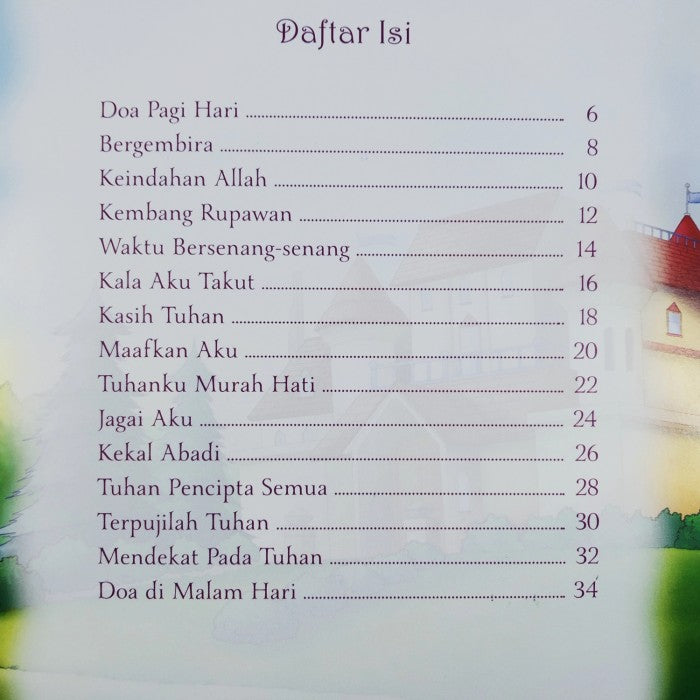 Daftar Isi
Doa Pagi Hari 6
Bergembira 8
Keindahan Allah 10
Kembang Rupawan 12
Waktu Bersenang-senang 14
Kala Aku Takut 16
Kasih Tuhan 18
Maafkan Aku 20
Tuhanku Murah Hati 22
Jagai Aku 24
Kekal Abadi 26
Tuhan Pencipta Semua 28
Terpujilah Tuhan 30
Mendekat Pada Tuhan 32
Doa di Malam Hari 34